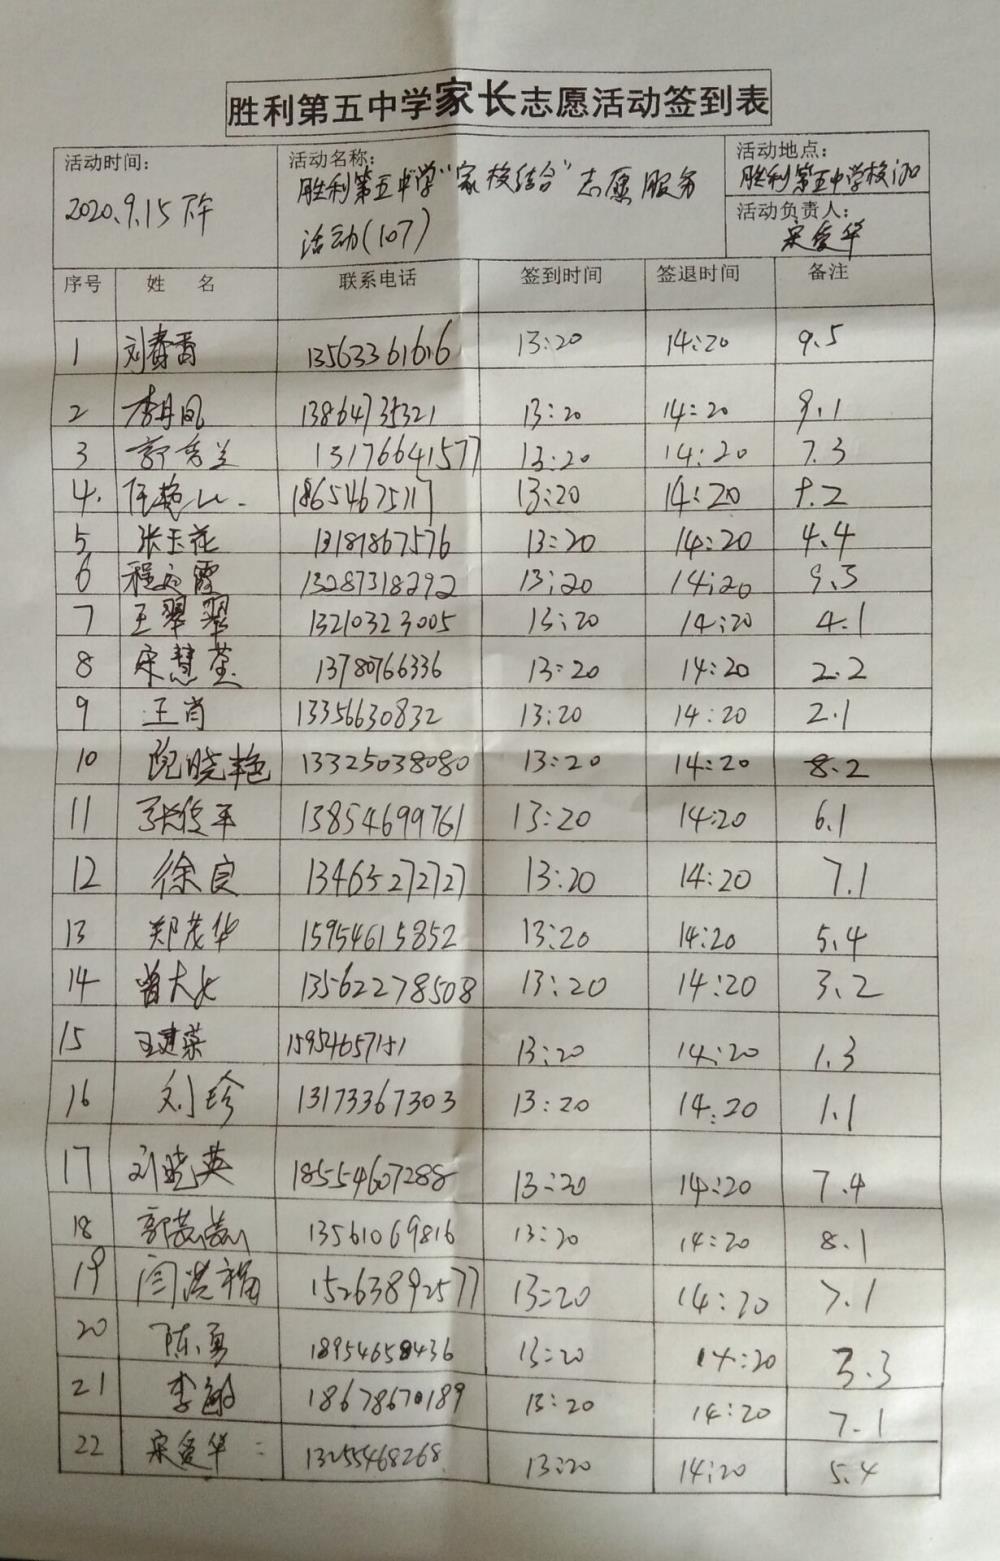 胜利第五中学家长志愿活动签到表
活动时间：
2020.9.15下午
活动名称：
胜利第五中学“家校结合”志愿服务
活动(107)
活动地点：
胜利第五中学校门口
活动负责人：
宋爱华
序号 姓 名 联系电话 签到时间 签退时间 备注
1 刘春香 13563361616 13:20 14:20 9.5
2 李丹凤 13864735321 13:20 14:20 9.1
3 郭秀兰 13176641577 13:20 14:20 7.3
4. 任艳 18654675117 13:20 14:20 9.2
5 张玉花 13181867576 13:20 14:20 4.4
6 程文霞 13287318292 13:20 14:20 9.3
7 王翠翠 13210323005 13:20 14:20 4.1
8 宋慧荃 13780766336 13:20 14:20 2.2
9 王肖 13356630832 13:20 14:20 2.1
10 倪晓艳 13325038080 13:20 14:20 8.2
11 张俊平 13854699761 13:20 14:20 6.1
12 徐良 13465272727 13:20 14:20 7.1
13 郑茂华 15954615852 13:20 14:20 5.4
14 曾大 13562278508 13:20 14:20 3.2
15 王建荣 15954657151 13:20 14:20 1.3
16 刘珍 13173367303 13:20 14:20 1.1
17 刘晓英 18554607288 13:20 14:20 7.4
18 郭燕燕 13561069816 13:20 14:20 8.1
19 闫洪福 15263892577 13:20 14:20 7.1
20 陈勇 18954658436 13:20 14:20 3.3
21 李敏 18678670189 13:20 14:20 7.1
22 宋爱华 13255468268 13:20 14:20 5.4